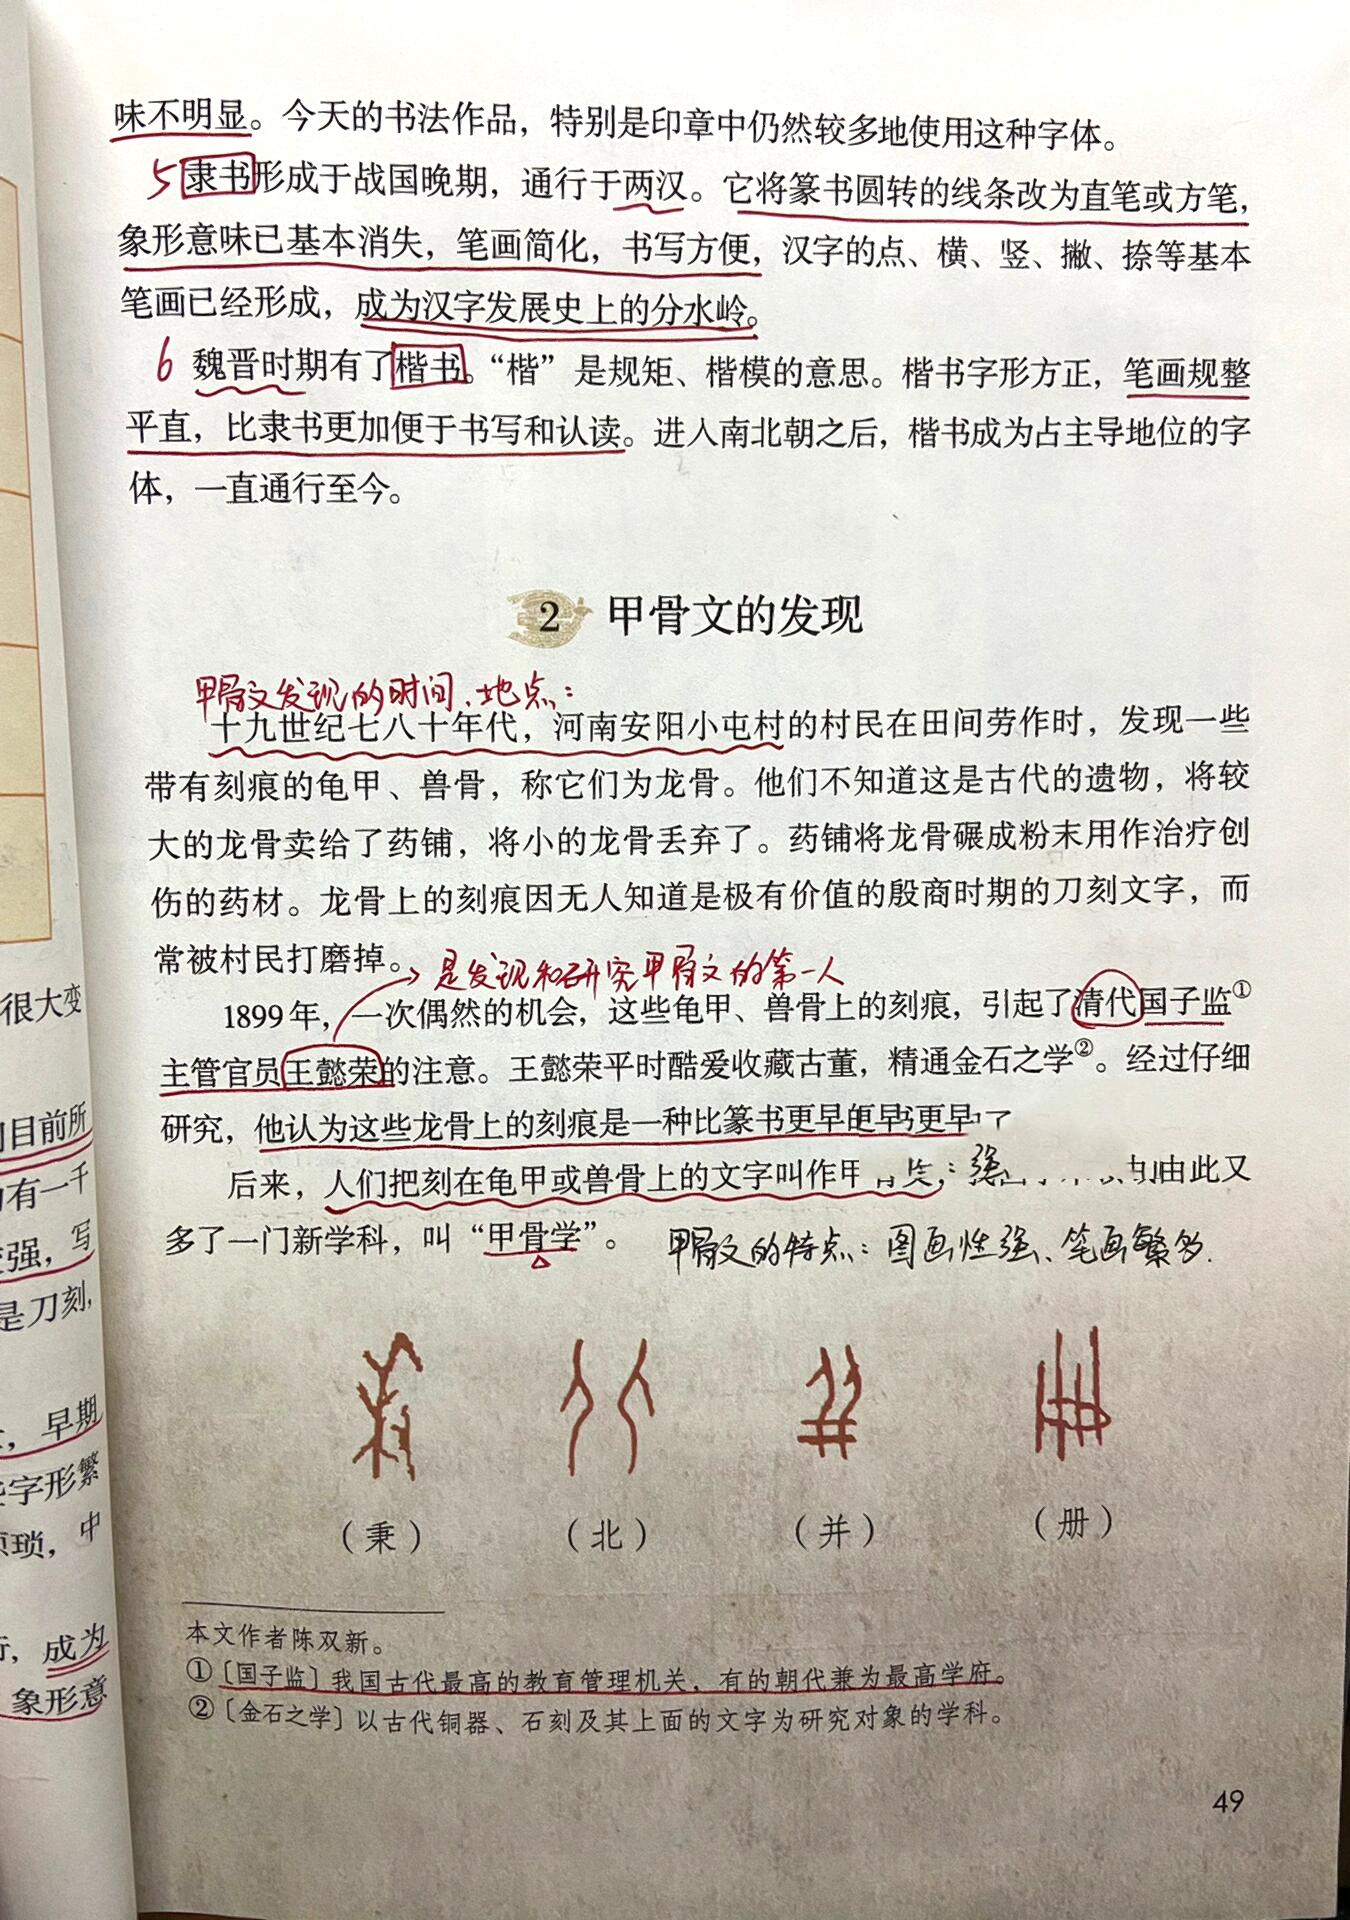 味不明显。今天的书法作品，特别是印章中仍然较多地使用这种字体。
5 隶书形成于战国晚期，通行于两汉。它将篆书圆转的线条改为直笔或方笔，
象形意味已基本消失，笔画简化，书写方便，汉字的点、横、竖、撇、捺等基本
笔画已经形成，成为汉字发展史上的分水岭。
6 魏晋时期有了楷书。“楷”是规矩、楷模的意思。楷书字形方正，笔画规整
平直，比隶书更加便于书写和认读。进入南北朝之后，楷书成为占主导地位的字
体，一直通行至今。
2 甲骨文的发现
甲骨文发现的时间、地点：
十九世纪七八十年代，河南安阳小屯村的村民在田间劳作时，发现一些
带有刻痕的龟甲、兽骨，称它们为龙骨。他们不知道这是古代的遗物，将较
大的龙骨卖给了药铺，将小的龙骨丢弃了。药铺将龙骨碾成粉末用作治疗创
伤的药材。龙骨上的刻痕因无人知道是极有价值的殷商时期的刀刻文字，而
常被村民打磨掉。
是发现和研究甲骨文的第一人
1899年，一次偶然的机会，这些龟甲、兽骨上的刻痕，引起了清代国子监①
主管官员王懿荣的注意。王懿荣平时酷爱收藏古董，精通金石之学②。经过仔细
研究，他认为这些龙骨上的刻痕是一种比篆书更早
后来，人们把刻在龟甲或兽骨上的文字叫作甲 由此又
多了一门新学科，叫“甲骨学”。
甲骨文的特点：图画性强、笔画繁多.
（秉） （北） （并） （册）
本文作者陈双新。
①〔国子监〕我国古代最高的教育管理机关，有的朝代兼为最高学府。
②〔金石之学〕以古代铜器、石刻及其上面的文字为研究对象的学科。
49
很大变
目前所
有一千
强，写
是刀刻，
，早期
字形繁
琐，中
，成为
象形意